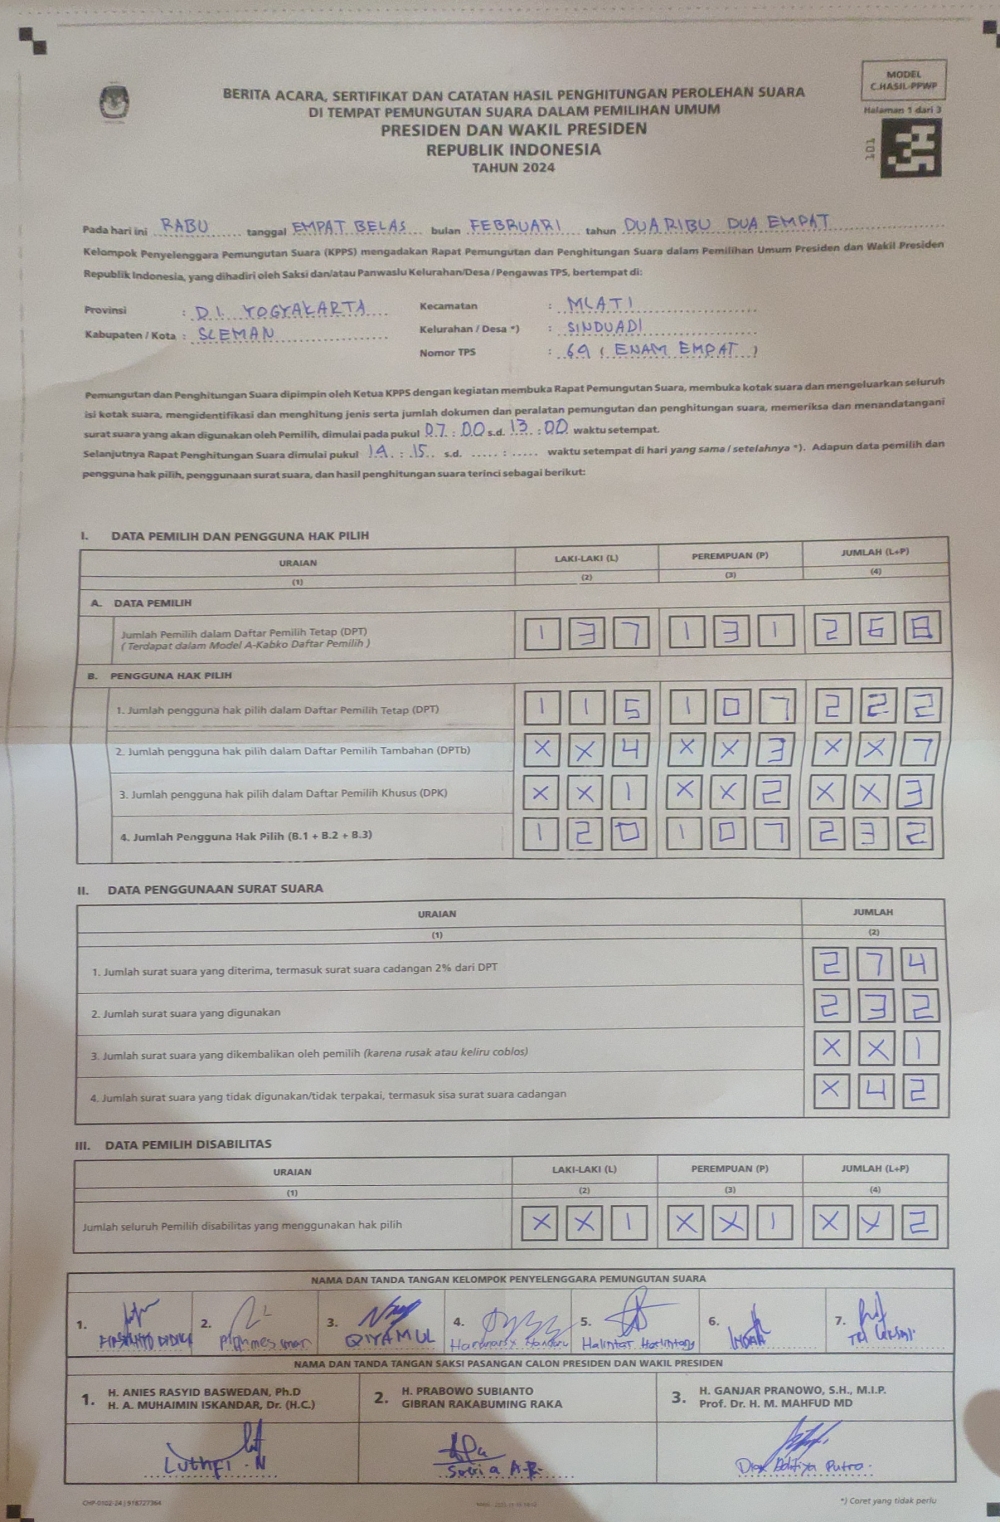 MODEL
C.HASIL-PPWP
Halaman 1 dari 3
101
BERITA ACARA, SERTIFIKAT DAN CATATAN HASIL PENGHITUNGAN PEROLEHAN SUARA
DI TEMPAT PEMUNGUTAN SUARA DALAM PEMILIHAN UMUM
PRESIDEN DAN WAKIL PRESIDEN
REPUBLIK INDONESIA
TAHUN 2024
Pada hari ini RABU tanggal EMPAT BELAS bulan FEBRUARI tahun DUA RIBU DUA EMPAT
Kelompok Penyelenggara Pemungutan Suara (KPPS) mengadakan Rapat Pemungutan dan Penghitungan Suara dalam Pemilihan Umum Presiden dan Wakil Presiden
Republik Indonesia, yang dihadiri oleh Saksi dan/atau Panwaslu Kelurahan/Desa / Pengawas TPS, bertempat di:
Provinsi : D.I. YOGYAKARTA Kecamatan : MLATI
Kabupaten / Kota : SLEMAN Kelurahan / Desa *) : SINDUADI
Nomor TPS : 64 ( ENAM EMPAT )
Pemungutan dan Penghitungan Suara dipimpin oleh Ketua KPPS dengan kegiatan membuka Rapat Pemungutan Suara, membuka kotak suara dan mengeluarkan seluruh
isi kotak suara, mengidentifikasi dan menghitung jenis serta jumlah dokumen dan peralatan pemungutan dan penghitungan suara, memeriksa dan menandatangani
surat suara yang akan digunakan oleh Pemilih, dimulai pada pukul 07 : 00 s.d. 13 : 00 waktu setempat.
Selanjutnya Rapat Penghitungan Suara dimulai pukul 14 : 15 s.d. ..... : ..... waktu setempat di hari yang sama / setelahnya *). Adapun data pemilih dan
pengguna hak pilih, penggunaan surat suara, dan hasil penghitungan suara terinci sebagai berikut:
I. DATA PEMILIH DAN PENGGUNA HAK PILIH
URAIAN LAKI-LAKI (L) PEREMPUAN (P) JUMLAH (L+P)
(1) (2) (3) (4)
A. DATA PEMILIH
Jumlah Pemilih dalam Daftar Pemilih Tetap (DPT) 1 3 7 1 3 1 2 6 8
( Terdapat dalam Model A-Kabko Daftar Pemilih )
B. PENGGUNA HAK PILIH
1. Jumlah pengguna hak pilih dalam Daftar Pemilih Tetap (DPT) 1 1 5 1 0 7 2 2 2
2. Jumlah pengguna hak pilih dalam Daftar Pemilih Tambahan (DPTb) X X 4 X X 3 X X 7
3. Jumlah pengguna hak pilih dalam Daftar Pemilih Khusus (DPK) X X 1 X X 2 X X 3
4. Jumlah Pengguna Hak Pilih (B.1 + B.2 + B.3) 1 2 0 1 0 7 2 3 2
II. DATA PENGGUNAAN SURAT SUARA
URAIAN JUMLAH
(1) (2)
1. Jumlah surat suara yang diterima, termasuk surat suara cadangan 2% dari DPT 2 7 4
2. Jumlah surat suara yang digunakan 2 3 2
3. Jumlah surat suara yang dikembalikan oleh pemilih (karena rusak atau keliru coblos) X X 1
4. Jumlah surat suara yang tidak digunakan/tidak terpakai, termasuk sisa surat suara cadangan X 4 2
III. DATA PEMILIH DISABILITAS
URAIAN LAKI-LAKI (L) PEREMPUAN (P) JUMLAH (L+P)
(1) (2) (3) (4)
Jumlah seluruh Pemilih disabilitas yang menggunakan hak pilih X X 1 X X 1 X X 2
NAMA DAN TANDA TANGAN KELOMPOK PENYELENGGARA PEMUNGUTAN SUARA
1. 2. 3. 4. 5. 6. 7.
QIYAMUL Halintar INDAH TRI
NAMA DAN TANDA TANGAN SAKSI PASANGAN CALON PRESIDEN DAN WAKIL PRESIDEN
1. H. ANIES RASYID BASWEDAN, Ph.D
H. A. MUHAIMIN ISKANDAR, Dr. (H.C.)
2. H. PRABOWO SUBIANTO
GIBRAN RAKABUMING RAKA
3. H. GANJAR PRANOWO, S.H., M.I.P.
Prof. Dr. H. M. MAHFUD MD
Luthfi . N Satria A.P. Aditya Putra
*) Coret yang tidak perlu